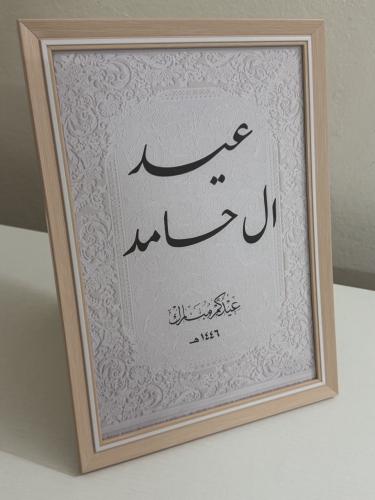 عيد
ال حامد
عِيْدُكُم مُبَارَك
١٤٤٦ هـ